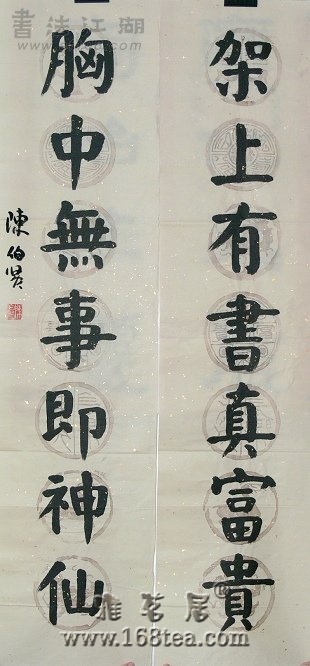 架上有書真富貴
胸中無事即神仙
陳伯賢
書法江湖
雅茗居
www.168tea.com